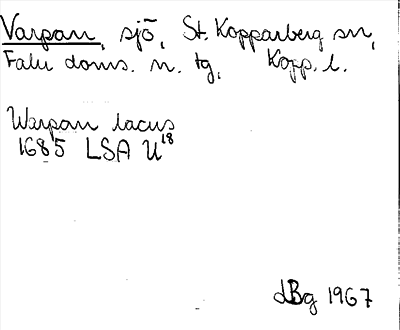 Varpan, sjö, St. Kopparberg sn,
Falu doms. n. tg, Kopp. l.
Warpan lacus
1685 LSA U18
dBg 1967